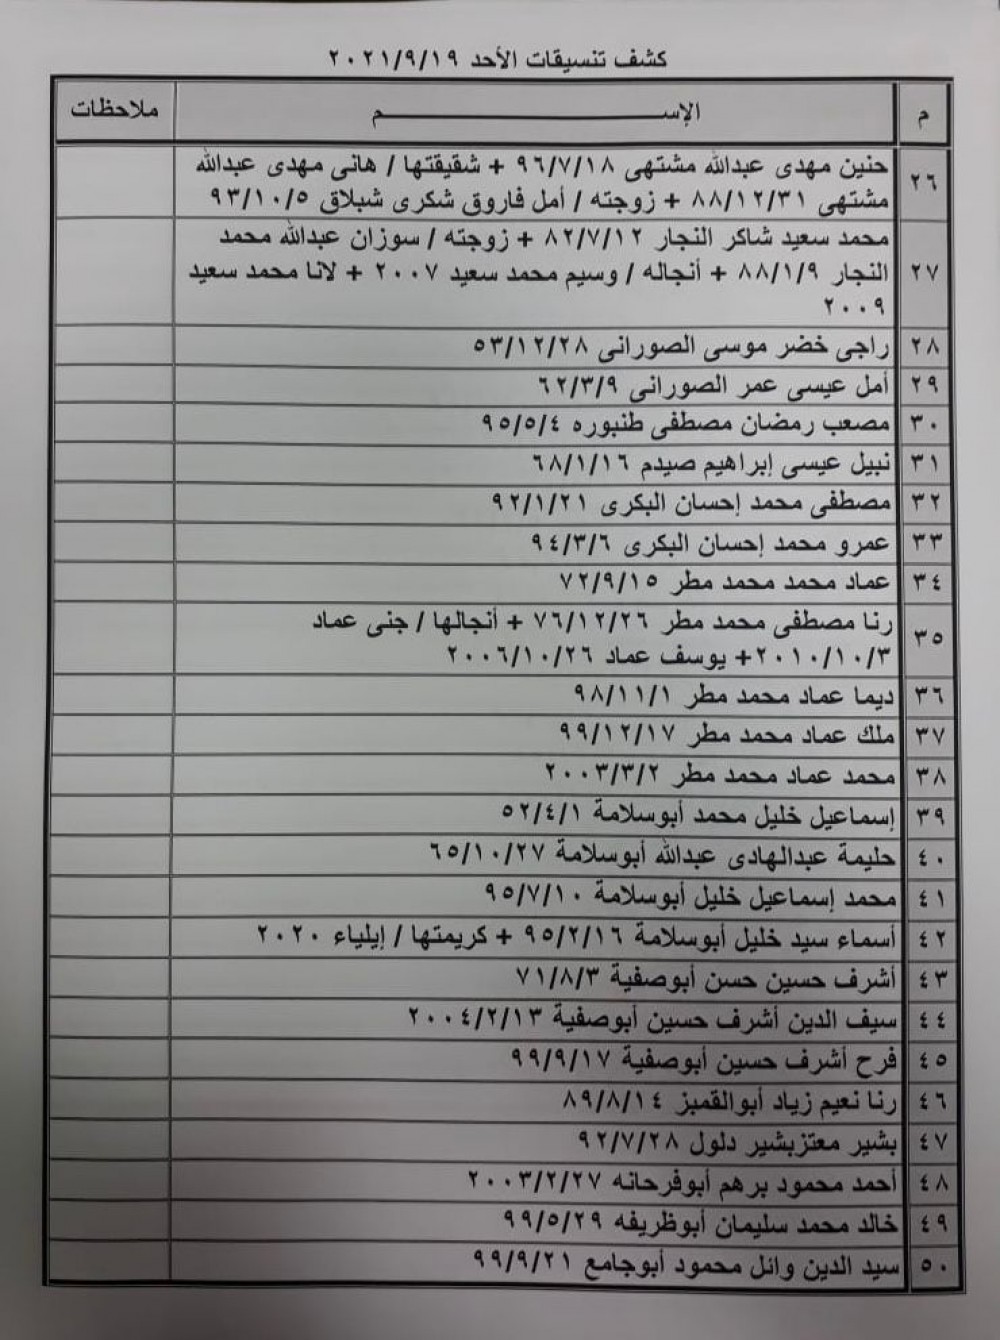 كشف تنسيقات الأحد ٢٠٢١/٩/١٩
م الإســـــم ملاحظات
٢٦ حنين مهدى عبدالله مشتهى ٩٦/٧/١٨ + شقيقتها / هانى مهدى عبدالله
مشتهى ٨٨/١٢/٣١ + زوجته / أمل فاروق شكرى شبلاق ٩٣/١٠/٥
محمد سعيد شاكر النجار ٨٢/٧/١٢ + زوجته / سوزان عبدالله محمد
٢٧ النجار ٨٨/١/٩ + أنجاله / وسيم محمد سعيد ٢٠٠٧ + لانا محمد سعيد
٢٠٠٩
٢٨ راجى خضر موسى الصورانى ٥٣/١٢/٢٨
٢٩ أمل عيسى عمر الصورانى ٦٢/٣/٩
٣٠ مصعب رمضان مصطفى طنبوره ٩٥/٥/٤
٣١ نبيل عيسى إبراهيم صيدم ٦٨/١/١٦
٣٢ مصطفى محمد إحسان البكرى ٩٢/١/٢١
٣٣ عمرو محمد إحسان البكرى ٩٤/٣/٦
٣٤ عماد محمد محمد مطر ٧٢/٩/١٥
٣٥ رنا مصطفى محمد مطر ٧٦/١٢/٢٦ + أنجالها / جنى عماد
٢٠١٠/١٠/٣+ يوسف عماد ٢٠٠٦/١٠/٢٦
٣٦ ديما عماد محمد مطر ٩٨/١١/١
٣٧ ملك عماد محمد مطر ٩٩/١٢/١٧
٣٨ محمد عماد محمد مطر ٢٠٠٣/٣/٢
٣٩ إسماعيل خليل محمد أبوسلامة ٥٢/٤/١
٤٠ حليمة عبدالهادى عبدالله أبوسلامة ٦٥/١٠/٢٧
٤١ محمد إسماعيل خليل أبوسلامة ٩٥/٧/١٠
٤٢ أسماء سيد خليل أبوسلامة ٩٥/٢/١٦ + كريمتها / إيلياء ٢٠٢٠
٤٣ أشرف حسين حسن أبوصفية ٧١/٨/٣
٤٤ سيف الدين أشرف حسين أبوصفية ٢٠٠٤/٢/١٣
٤٥ فرح أشرف حسين أبوصفية ٩٩/٩/١٧
٤٦ رنا نعيم زياد أبوالقمبز ٨٩/٨/١٤
٤٧ بشير معتزبشير دلول ٩٢/٧/٢٨
٤٨ أحمد محمود برهم أبوفرحانه ٢٠٠٣/٢/٢٧
٤٩ خالد محمد سليمان أبوظريفه ٩٩/٥/٢٩
٥٠ سيد الدين وائل محمود أبوجامع ٩٩/٩/٢١